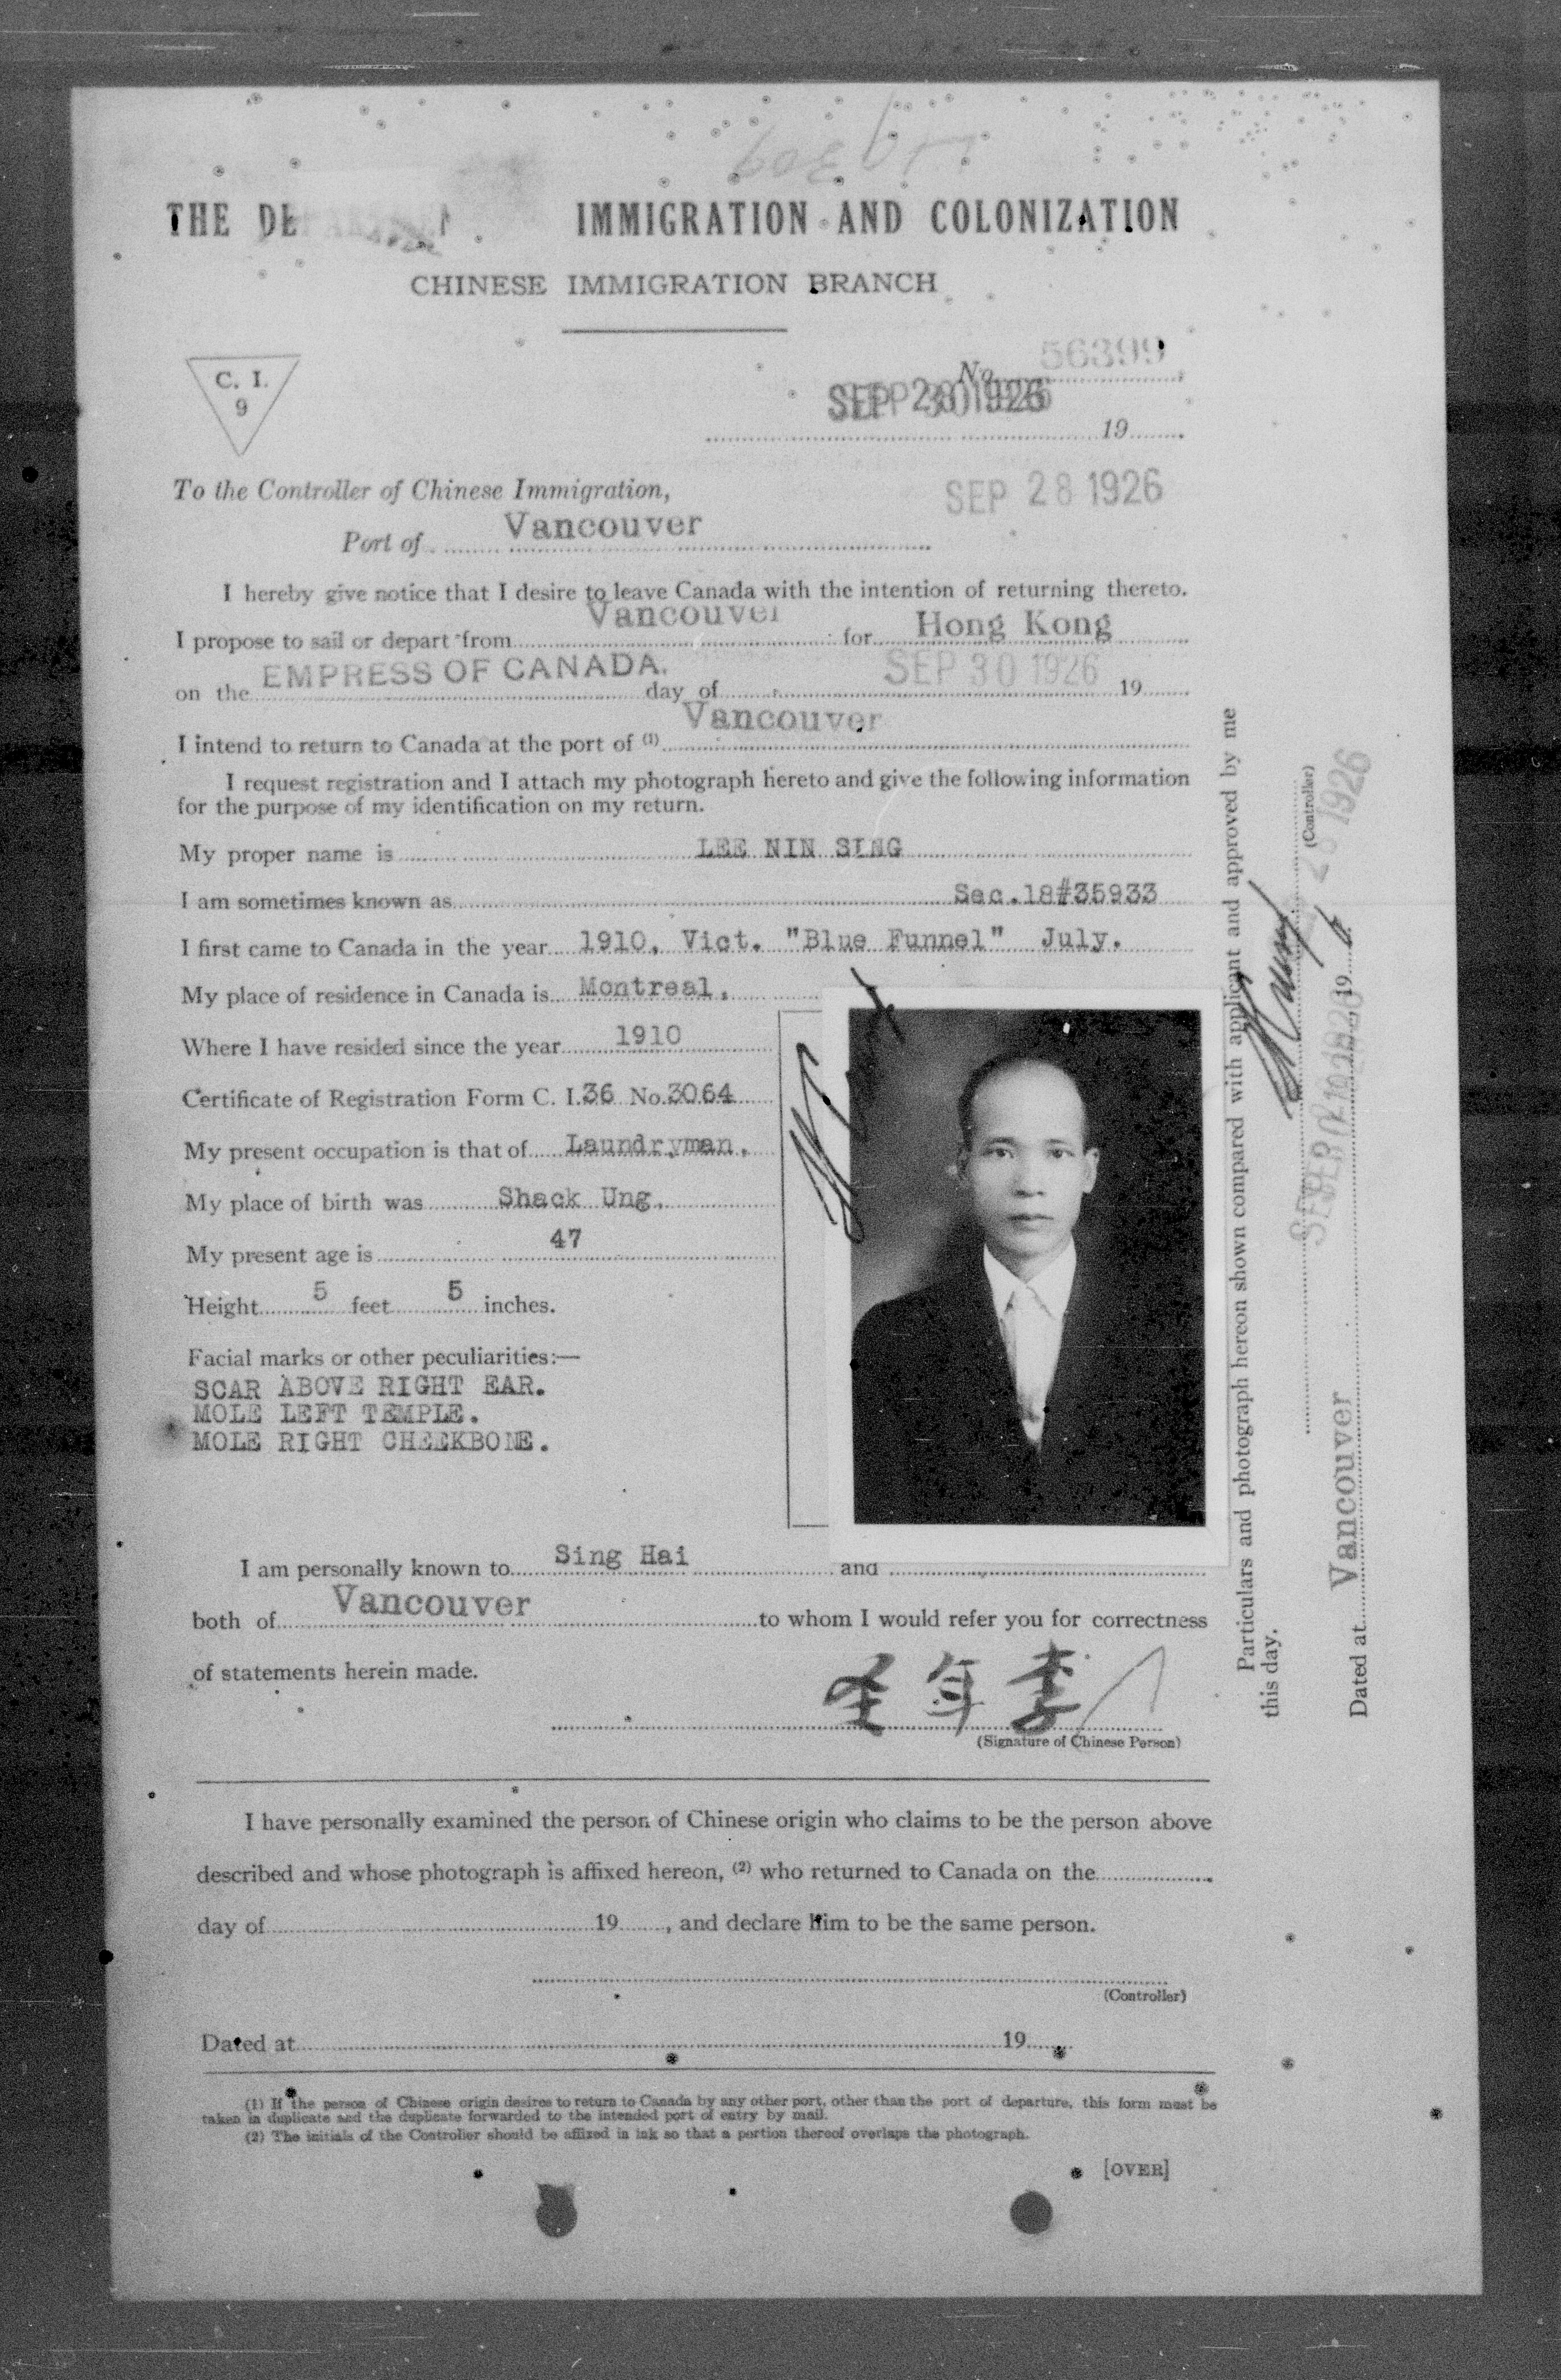 THE DEPARTMENT IMMIGRATION AND COLONIZATION
CHINESE IMMIGRATION BRANCH
C. I.
9
No. 56399
SEP 28 1926 SEP 30 1926
19
To the Controller of Chinese Immigration,
SEP 28 1926
Port of Vancouver
I hereby give notice that I desire to leave Canada with the intention of returning thereto.
I propose to sail or depart from Vancouver for Hong Kong
on the EMPRESS OF CANADA. day of SEP 30 1926 19
I intend to return to Canada at the port of (1) Vancouver
I request registration and I attach my photograph hereto and give the following information
for the purpose of my identification on my return.
My proper name is LEE NIN SING
I am sometimes known as Sec.18#35933
I first came to Canada in the year 1910, Vict. "Blue Funnel" July.
My place of residence in Canada is Montreal,
Where I have resided since the year 1910
Certificate of Registration Form C. I. 36 No. 3064
My present occupation is that of Laundryman,
My place of birth was Shack Ung,
My present age is 47
Height 5 feet 5 inches.
Facial marks or other peculiarities:—
SCAR ABOVE RIGHT EAR.
MOLE LEFT TEMPLE.
MOLE RIGHT CHEEKBONE.
I am personally known to Sing Hai and
both of Vancouver to whom I would refer you for correctness
of statements herein made.
圣年李
(Signature of Chinese Person)
I have personally examined the person of Chinese origin who claims to be the person above
described and whose photograph is affixed hereon, (2) who returned to Canada on the
day of 19 , and declare him to be the same person.
(Controller)
Dated at 19
(1) If the person of Chinese origin desires to return to Canada by any other port, other than the port of departure, this form must be
taken in duplicate and the duplicate forwarded to the intended port of entry by mail.
(2) The initials of the Controller should be affixed in ink so that a portion thereof overlaps the photograph.
[OVER]
Particulars and photograph hereon shown compared with applicant and approved by me
this day.
(Controller)
28 1926
Dated at Vancouver 19